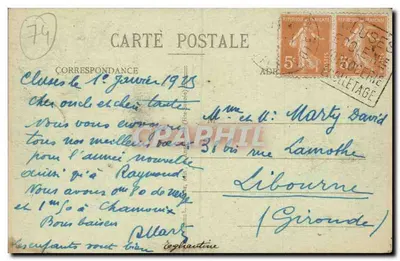 74
CARTE POSTALE
CORRESPONDANCE
Cluses le 1er janvier 1925
Cher oncle et chère tante
Nous vous envoyons
tous nos meilleurs vœux
pour l'année nouvelle
ainsi qu'à Raymond.
Nous avons eu 80 de neige
et 1m50 à Chamonix
Bons baisers
Les enfants vont bien
Eglantine
Mme et Mr Marty David
31 bis rue Lamothe
Libourne
(Gironde)
5c
CLUSES
DÉCOLLETAGE